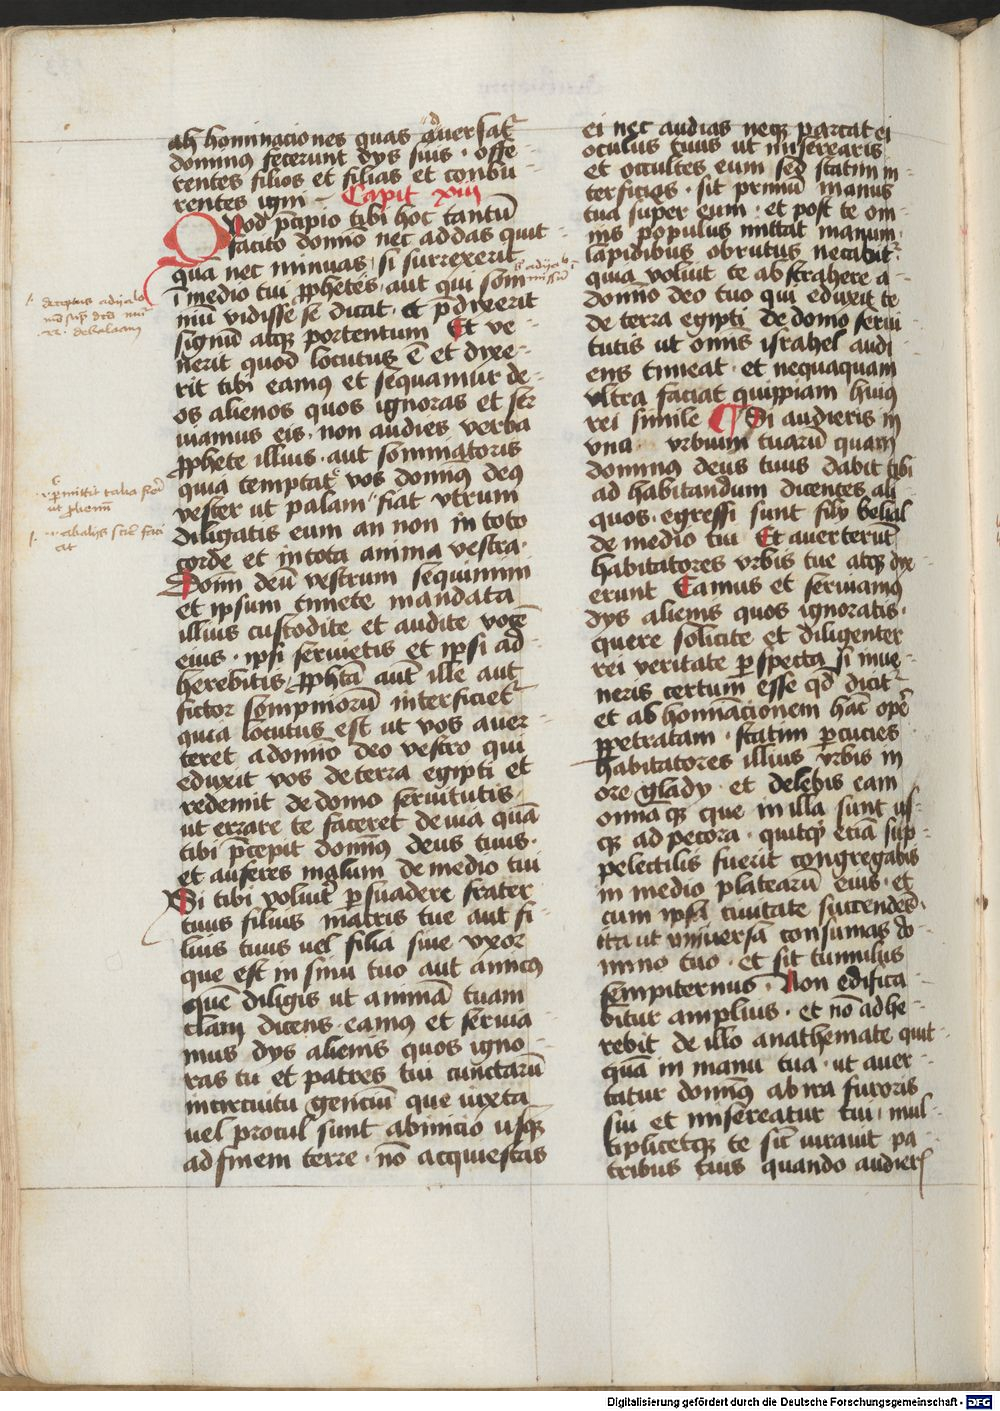 ab hominaciones quas aduersatr
dominus fecerunt dys suis · offe
rentes filios et filias et conbu
rentes igni Capit xiii
Quod pcipio tibi hoc tantū
facito domīo nec addas quit
quā nec minuas si surrexerit
ī medio tui pphetes aut qui som
niū vidisse se dicat · et pdixerit
signū atqz portentum Et ve
nerit quod locutus ē et dixe
rit tibi eamus et sequamur de
os alienos quos ignoras et ser
uiamus eis · non audies verba
pphete illius · aut somniatoris
quia temptat vos dominus deus
vester ut palam fiat vtrum
diligatis eum an non in toto
corde et in tota anima vestra ·
Dom deū vestrum sequimini
et ipsum timete mandata
illius custodite et audite vocē
eius · ipsi seruietis et ipsi ad
herebitis · pphta aut ille aut
fictor sompniorū interficietr
quia locutus est ut vos auer
teret a domīo deo vestro qui
eduxit vos de terra egipti et
redemit de domo seruitutis ·
ut errare te faceret de via quā
tibi pcepit domīus deus tuus ·
et auferes malum de medio tui
Si tibi voluit psuadere frater
tuus filius matris tue aut fi
lius tuus uel filia siue vxor
que est in sinu tuo aut amicus
quē diligis ut animā tuam
clam dicens · eamus et seruia
mus dys alienis quos igno
ras tu et patres tui cunctarū
in circuitu genciū que iuxta
uel procul sunt ab inicio usqz
ad finem terre · nō acquiescas
ei nec audias neqz parcat ei
oculus tuus ut miserearis
et occultes eum sed statim in
terficias · sit primū manus
tua super eum · et post te om
nis populus mittat manum ·
lapidibus obrutus necabitr
quia voluit te abstrahere a
domīo deo tuo qui eduxit te
de terra egipti de domo serui
tutis ut omīs israhel audi
ens timeat · et nequaquam
vltra faciat quippiam huius
rei simile Si audieris in
vna · vrbium tuarū quam
dominus deus tuus dabit tibi
ad habitandum dicentes ali
quos · egressi sunt filÿ belial
de medio tui Et auerterūt
habitatores vrbis tue atqz dyx
erunt Eamus et seruiamus
dys alienis quos ignoratis ·
quere solicite et diligenter
rei veritate pspecta si inue
neris certum esse qd dicitr
et ab hominacionem hac ope
ppetratam · statim pcucies
habitatores illius vrbis in
ore gladÿ · et delebis eam
omiaqz que in illa sunt us
qz ad pecora · quitqd eciā sup
pelectilis fuerit congregabis
in medio platearū eius · et
cum ipsa ciuitate succendes ·
ita ut vniuersa consumas do
mino tuo · et sit tumulus
sempiternus · Non edifica
bitur amplius · et nō adhe
rebit de illo anathemate quit
quā in manu tua · ut auer
tatur domīus ab ira furoris
sui et misereatur tui · mul
tiplicetqz te sic iurauit pa
tribus tuis quando audier
Digitalisierung gefördert durch die Deutsche Forschungsgemeinschaft - DFG